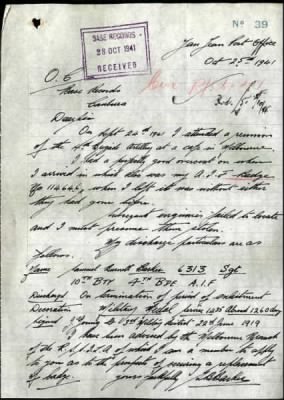 No 39
BASE RECORDS
28 OCT 1941
RECEIVED
Yan Jean Post Office
Oct 25th 1941
O. C
Base Records
Canberra
Dear Sir
On Sept 24th 1941 I attended a reunion
of the 4th Brigade Artillery at a cafe in Melbourne.
I had a perfectly good overcoat on when
I arrived in which also was my A.I.F Badge
No , when I left it was without either
they had gone before.
Subsequent enquiries failed to locate
and I must presume them stolen.
My discharge particulars are as
follows.
Name Samuel Barker 6313 Sgt
10th Bty 4th Bde A.I.F
Discharge On termination of period of enlistment
Decoration Military Medal Service Abroad 1260 days
3rd Military District 22nd June 1919
I have been advised by the Melbourne Branch
of the R.S.S.I.L.A of which I am a member to apply
to you as to the prospect of securing a replacement
of badge. Yours faithfully Barker